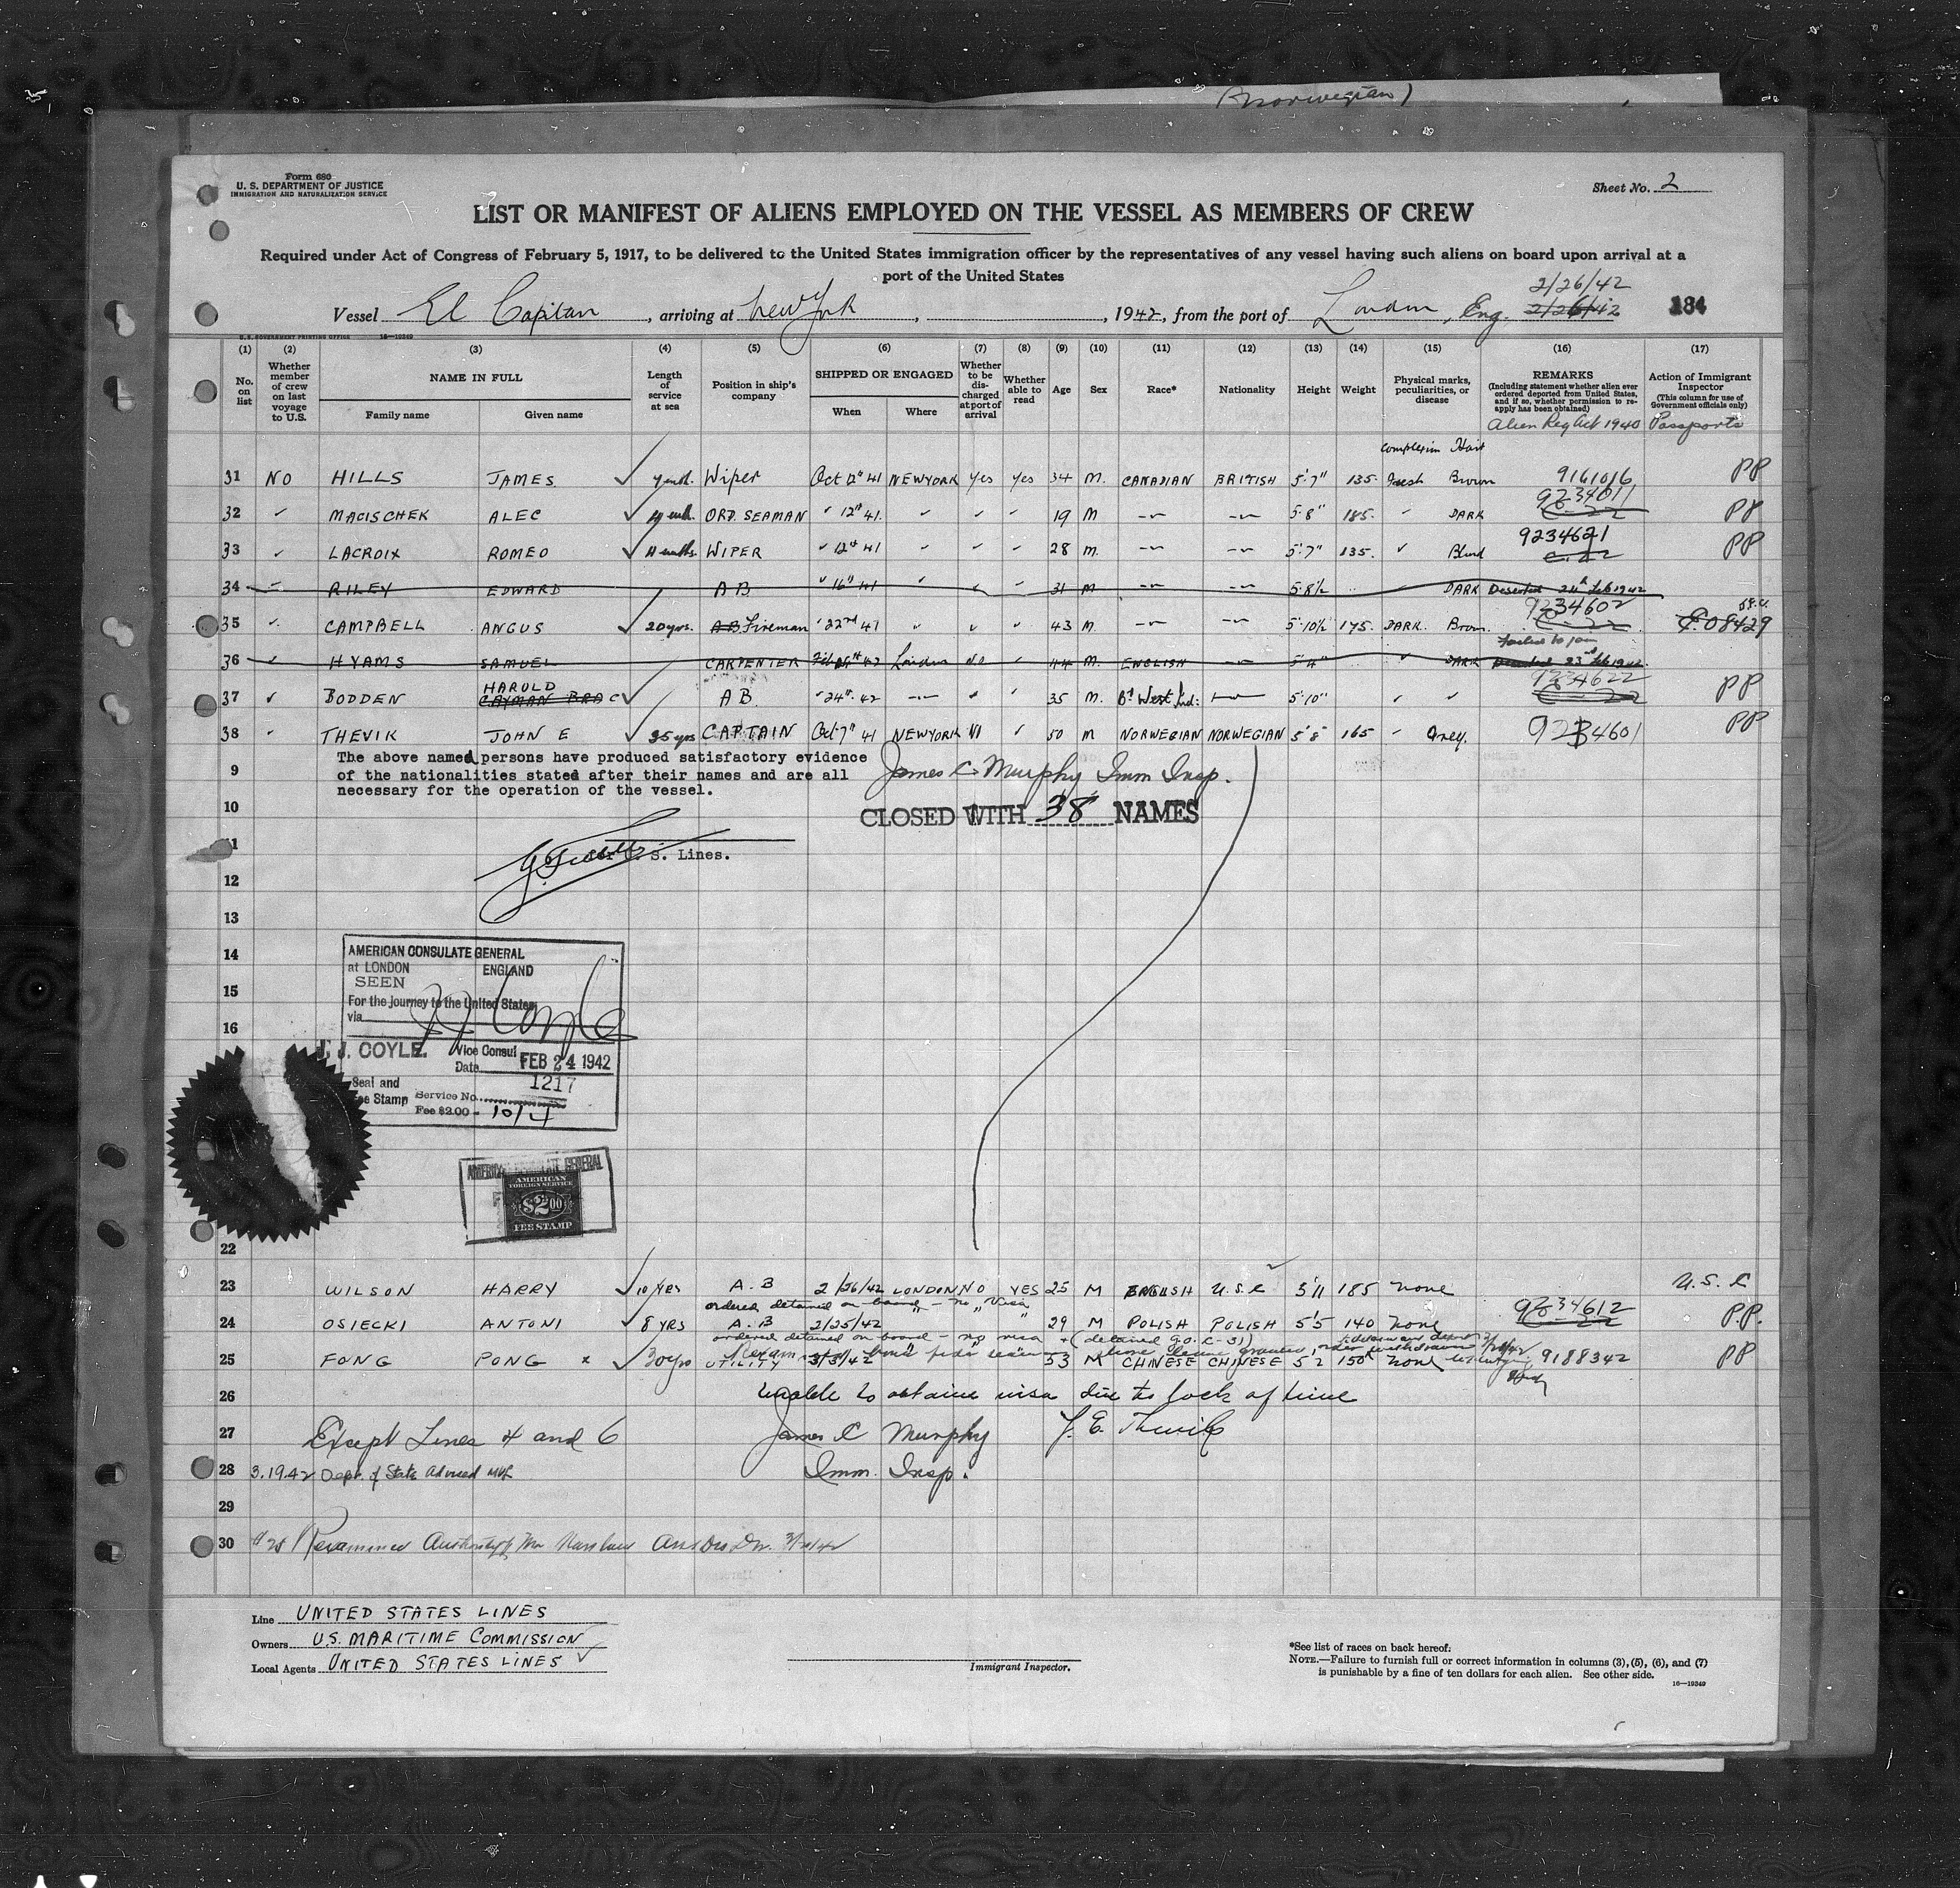 (Norwegian)
Form 680
U. S. DEPARTMENT OF JUSTICE
IMMIGRATION AND NATURALIZATION SERVICE
Sheet No. 2
LIST OR MANIFEST OF ALIENS EMPLOYED ON THE VESSEL AS MEMBERS OF CREW
Required under Act of Congress of February 5, 1917, to be delivered to the United States immigration officer by the representatives of any vessel having such aliens on board upon arrival at a
port of the United States
2/26/42
Vessel El Capitan, arriving at New York, , 1942, from the port of London, Eng. 2/26/42 184
U. S. GOVERNMENT PRINTING OFFICE 16—19349
(1) (2) (3) (4) (5) (6) (7) (8) (9) (10) (11) (12) (13) (14) (15) (16) (17)
No. on list
Whether member of crew on last voyage to U.S.
NAME IN FULL
Family name Given name
Length of service at sea
Position in ship's company
SHIPPED OR ENGAGED
When Where
Whether to be discharged at port of arrival
Whether able to read
Age
Sex
Race*
Nationality
Height
Weight
Physical marks, peculiarities, or disease
REMARKS
(Including statement whether alien ever ordered deported from United States, and if so, whether permission to reapply has been obtained)
Action of Immigrant Inspector
(This column for use of Government officials only)
Alien Reg Act 1940 Passports
Complexion Hair
31 NO HILLS JAMES Wiper Oct 12th 41 NEWYORK Yes Yes 34 M. CANADIAN BRITISH 5'7" 135 Fresh Brown 9161016 PP
32 ✓ MACISCHEK ALEC ORD. SEAMAN ✓ 12th 41. ✓ ✓ ✓ 19 M 5'8" 185. ✓ DARK 9234011 PP
33 ✓ LACROIX ROMEO 4 mths. WIPER ✓ 12th 41 ✓ ✓ ✓ 28 M. 5'7" 135. ✓ Blond 9234621 PP
34 RILEY EDWARD A B ✓ 16th 41 ✓ ✓ ✓ 31 M 5'8½ DARK Deserted 24th Feb 1942
35 ✓ CAMPBELL ANGUS 20 yrs. A B Fireman ✓ 22nd 41 ✓ ✓ ✓ 43 M 5'10½ 175. DARK. Brown. 9234602 C.08429
Failed to join
36 ✓ HYAMS SAMUEL CARPENTER London NO ✓ 44 M. ENGLISH 5'4" ✓ DARK Deserted 23rd Feb 1942
37 ✓ BODDEN HAROLD CAYMAN BRAC A B. ✓ 24th 42 ✓ ✓ 35 M. Bt West Ind: 5'10" ✓ ✓ 9234622 PP
38 ✓ THEVIK JOHN E 35 yrs CAPTAIN Oct 7th 41 NEWYORK ✓ 50 M NORWEGIAN NORWEGIAN 5'8" 165 ✓ Grey. 9234601 PP
The above named persons have produced satisfactory evidence
of the nationalities stated after their names and are all
necessary for the operation of the vessel.
James C Murphy Imm Insp.
9
10
CLOSED WITH 38 NAMES
11
S. Lines.
12
13
14
15
16
AMERICAN CONSULATE GENERAL
at LONDON ENGLAND
SEEN
For the journey to the United States
via
J. J. COYLE. Vice Consul
Date FEB 24 1942
1217
Seal and
Fee Stamp Service No.
Fee $2.00 - 10/4
AMERICAN CONSULATE GENERAL
AMERICAN
FOREIGN SERVICE
$2.00
FEE STAMP
22
23 WILSON HARRY 10 YRS A.B 2/26/42 LONDON NO YES 25 M ENGLISH U.S.C 5'11 185 None U.S.C
ordered detained on board - no Visa
24 OSIECKI ANTONI 8 YRS A.B 2/25/42 " " 29 M POLISH POLISH 5'5 140 None 9234612 P.P.
ordered detained on board - no visa (detained G.O. C-31)
25 FONG PONG x 30 yrs UTILITY 3/3/42 53 M CHINESE CHINESE 5 2 150 None 9188342 PP
26 Unable to obtain visa due to lack of time
27 Except Lines 4 and 6 James C Murphy J. E. Thevik
28 3.19.42 Dept. of State Advised Imm. Insp.
29
30 Reexamined
Line UNITED STATES LINES
Owners U.S. MARITIME COMMISSION
Local Agents UNITED STATES LINES
Immigrant Inspector.
*See list of races on back hereof.
NOTE.—Failure to furnish full or correct information in columns (3), (5), (6), and (7)
is punishable by a fine of ten dollars for each alien. See other side.
16—19349